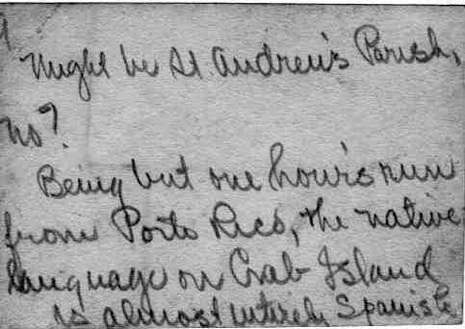 Might be St. Andrew's Parish,
no?
Being but one hour's run
from Porto Rico, the native
language on Crab Island
is almost entirely Spanish